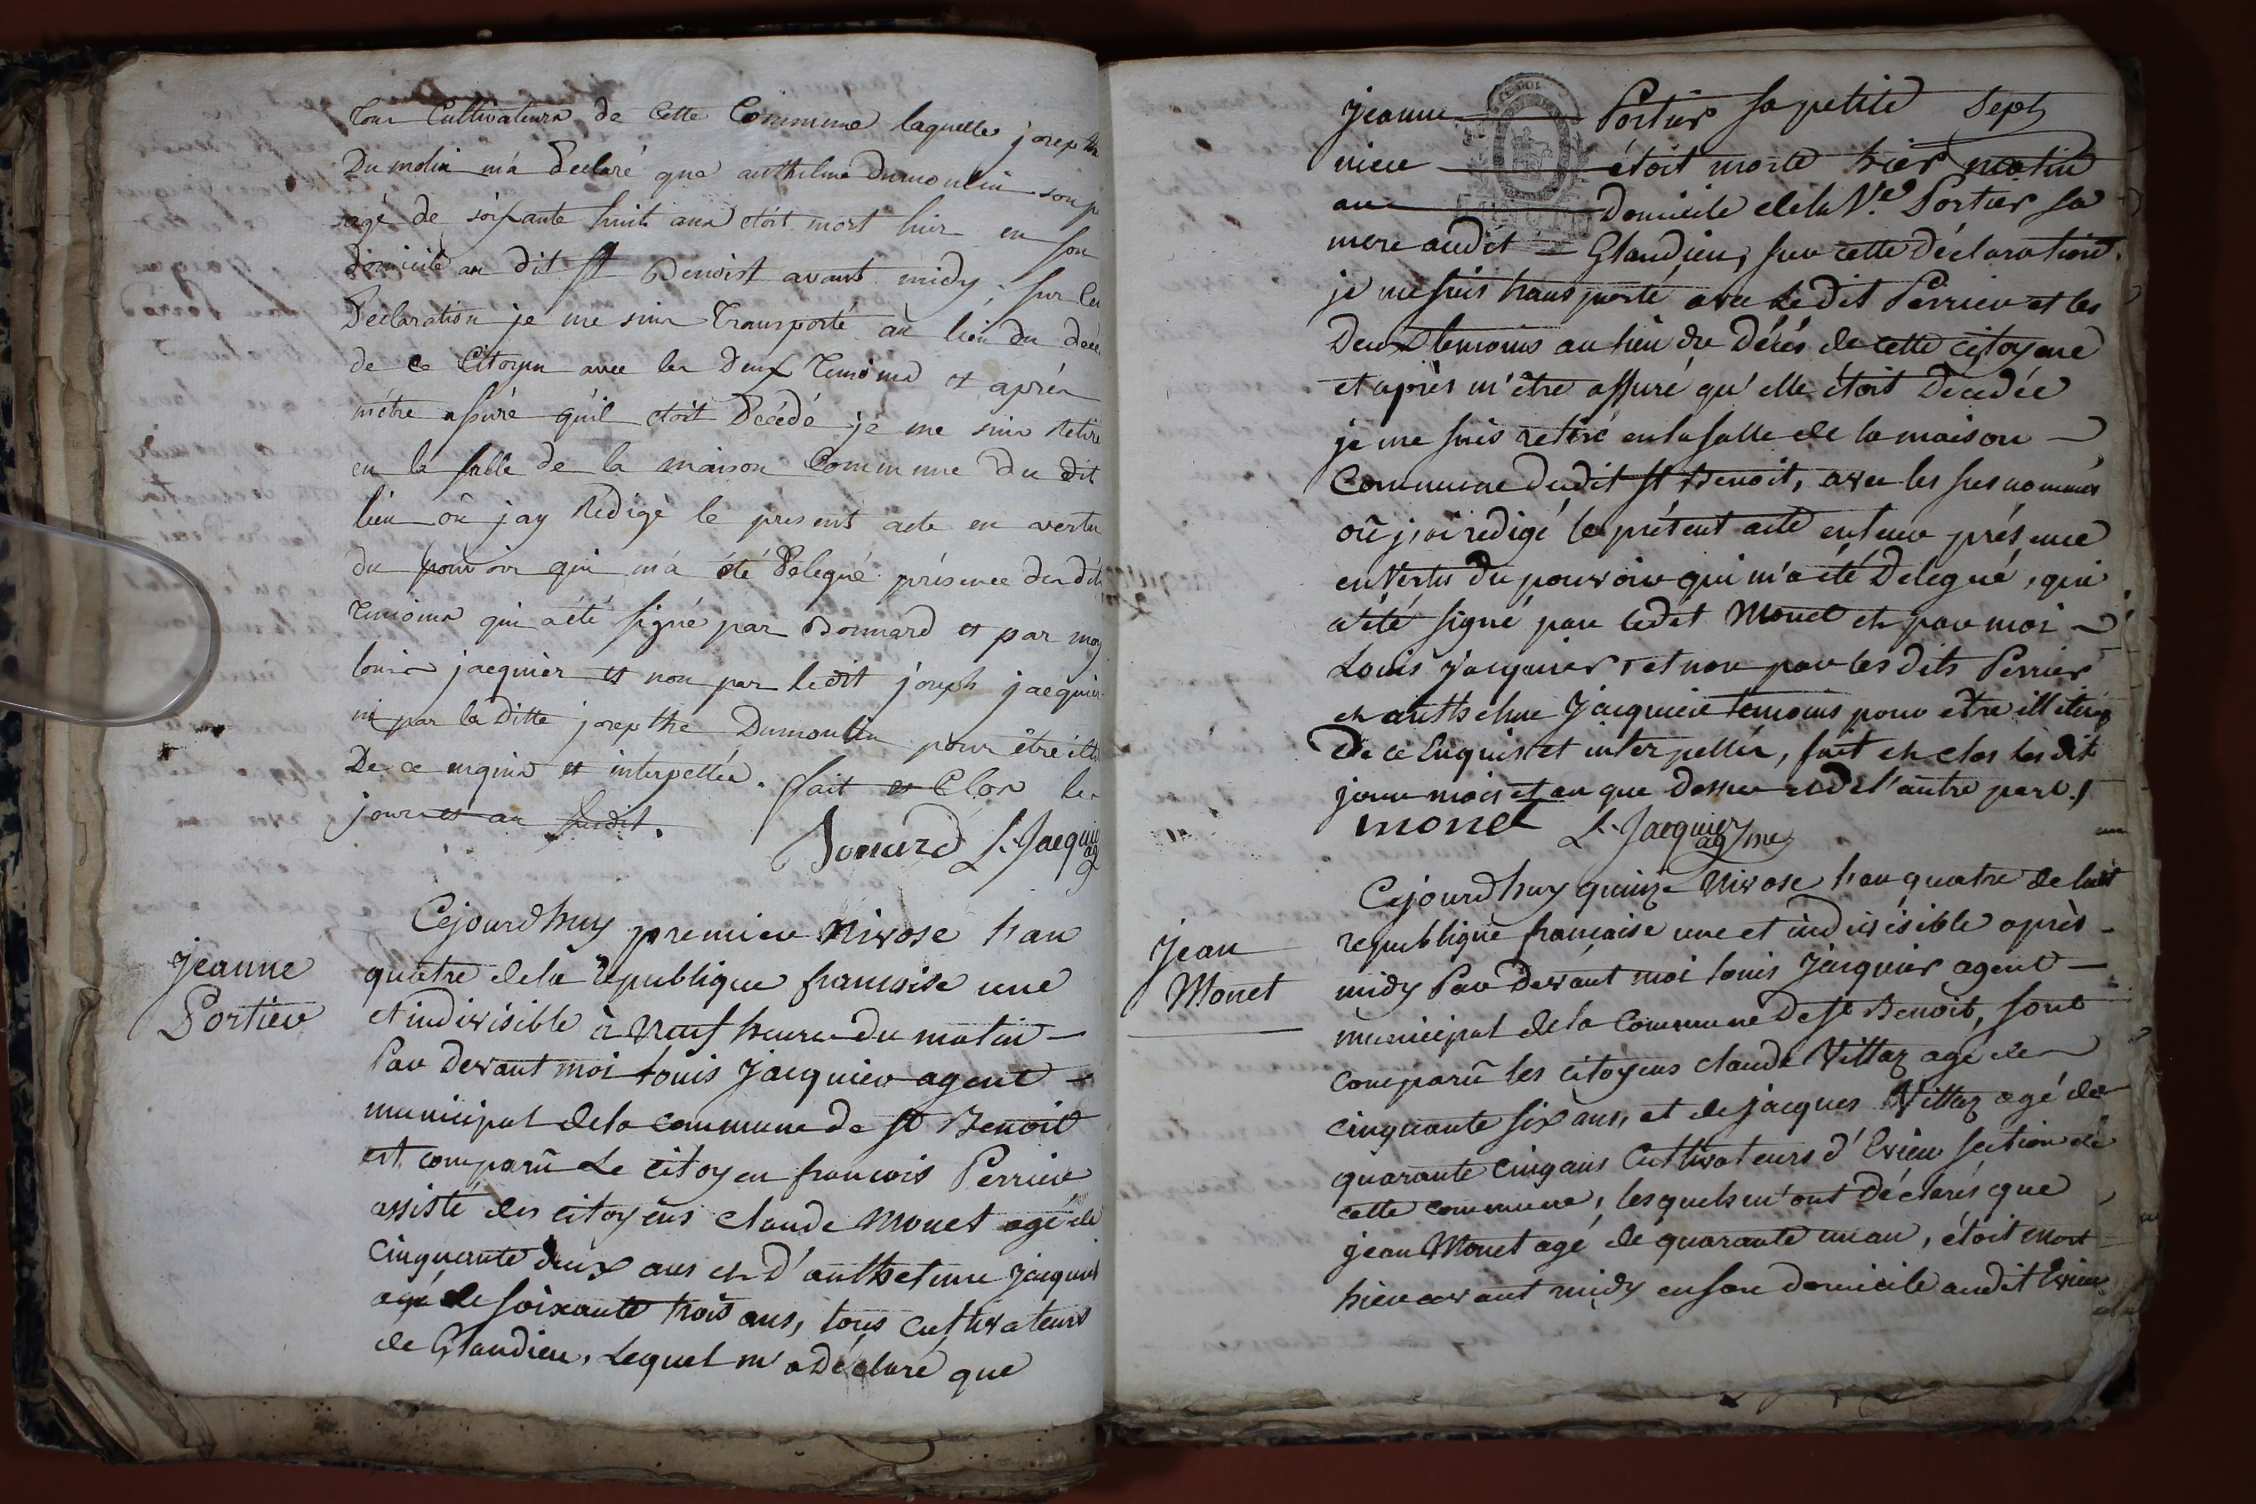 tous Cultivateurs de Cette Commune laquelle josepthe
Dumolin m'a declaré que anthelme Dumoulin son p
agé de soixante huit ans étoit mort hier en son
domicile au dit St Benoist avant midy, sur la
Declaration je me suis Transporté au lieu du décé
de ce Citoyen avec les Deux Temoins et après
m'être assuré qu'il étoit Décédé je me suis Retiré
en la salle de la maison Commune du dit
lieu où jay Rédigé le present acte en vertu
du pouvoir qui m'a été Delegué présence desdits
Temoins qui a été signé par Bonnard et par moy
louis jacquier et non par ledit joseph jacquier
ni par la ditte josepthe Dumoulin pour être ill
De ce enquis et interpellés. fait et Clos les
jours et an susdit.
Bonard L. Jacquier
ag
Jeanne
Portier
Cejourd'huy premier Nivose l'an
quatre de la republique francoise une
et indivisible à Neuf heures du matin
Par devant moi Louis Jacquier agent
municipal de la commune de St Benoit
est comparu Le citoyen francois Perrier
assisté des citoyens claude Monet agé de
cinquante deux ans et d'anthelme Jacquier
agé de soixante trois ans, tous cultivateurs
de Glandieu, Lequel m'a déclaré que
Jeanne Portier sa petite
niece étoit morte hier matin
au Domicile de la Ve Portier sa
mere audit Glandieu, sur cette déclaration
je me suis transporté avec Le dit Perrier et les
Deux temoins au lieu du Décés de cette citoyene
et après m'être assuré qu'elle étoit Decedée
je me suis retiré en la salle de la maison
Commune dudit St Benoit, avec les susnommés
où j'ai redigé le présent acte en leur présence
en Vertu du pouvoir qui m'a été Delegué, qui
a été signé par ledit Monet et par moi
Louis Jacquier et non par les dits Perrier
et anthelme Jacquier temoins pour être illiterés
De ce Enquis et interpellés, fait et clos les dit
jour mois et an que Dessus et de l'autre part.
monet L. Jacquier
ag me
Jean
Monet
Cejourd'huy quinze Nivose l'an quatre de la
republique francaise une et indivisible après
midy Par devant moi louis Jacquier agent
municipal de la Commune de St Benoit, sont
comparu les citoyens claude Vittoz agé de
cinquante six ans, et de jacques Vittoz agé de
quarante cinq ans Cultivateurs d'Evieu section de
cette commune, lesquels m'ont déclarés que
jean Monet agé de quarante un an, étoit mort
hier avant midy en son domicile audit Evieu